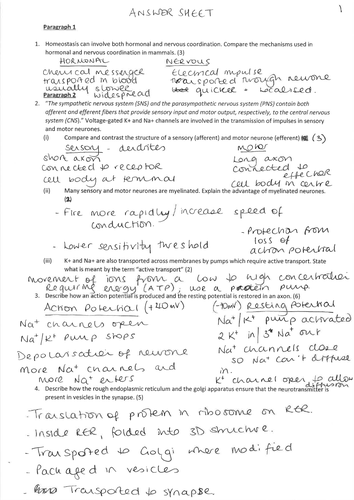 ANSWER SHEET
1
Paragraph 1
1. Homeostasis can involve both hormonal and nervous coordination. Compare the mechanisms used in
hormonal and nervous coordination in mammals. (3)
HORMONAL NERVOUS
chemical messenger Electrical impulse
transported in blood Transported through neurone
usually slower quicker + localised.
Paragraph 2 widespread
2. "The sympathetic nervous system (SNS) and the parasympathetic nervous system (PNS) contain both
afferent and efferent fibers that provide sensory input and motor output, respectively, to the central nervous
system (CNS)." Voltage-gated K+ and Na+ channels are involved in the transmission of impulses in sensory
and motor neurones.
(i) Compare and contrast the structure of a sensory (afferent) and motor neurone (efferent) (3)
Sensory - dendrites Motor
short axon Long axon
connected to receptor connected to effector
cell body at terminal cell body in centre
(ii) Many sensory and motor neurones are myelinated. Explain the advantage of myelinated neurones.
(2)
- Fire more rapidly/increase speed of
conduction.
- Protection from
loss of
action potential
- Lower sensitivity threshold
(iii) K+ and Na+ are also transported across membranes by pumps which require active transport. State
what is meant by the term "active transport" (2)
Movement of ions from a low to high concentration
Requiring energy (ATP); use a protein pump
3. Describe how an action potential is produced and the resting potential is restored in an axon. (6)
Action Potential (+40mV) Resting Potential
Na+ channels open Na+/K+ pump activated
Na+/K+ pump stops 2 K+ in/3 Na+ out
Depolarisation of neurone Na+ channels close
more Na+ channels and so Na+ can't diffuse
more Na+ enters in.
K+ channel open to allow
diffusion
4. Describe how the rough endoplasmic reticulum and the golgi apparatus ensure that the neurotransmitter is
present in vesicles in the synapse. (5)
- Translation of protein in ribosome on RER.
- Inside RER, folded into 3D structure.
- Transported to Golgi where modified
- Packaged in vesicles
- Transported to synapse